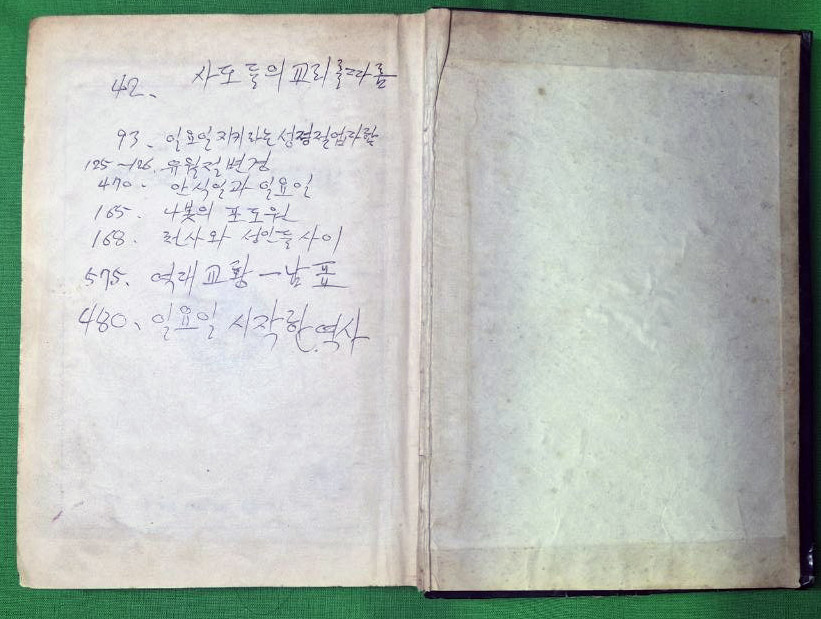 42. 사도들의 교리를 따름
93. 일요일 지키라는 성경절 업다함
125-126. 유월절 변경
470. 안식일과 일요일
165. 나봇의 포도원
168. 천사와 성인들 사이
575. 역대교황 일남표
480. 일요일 시작한 역사